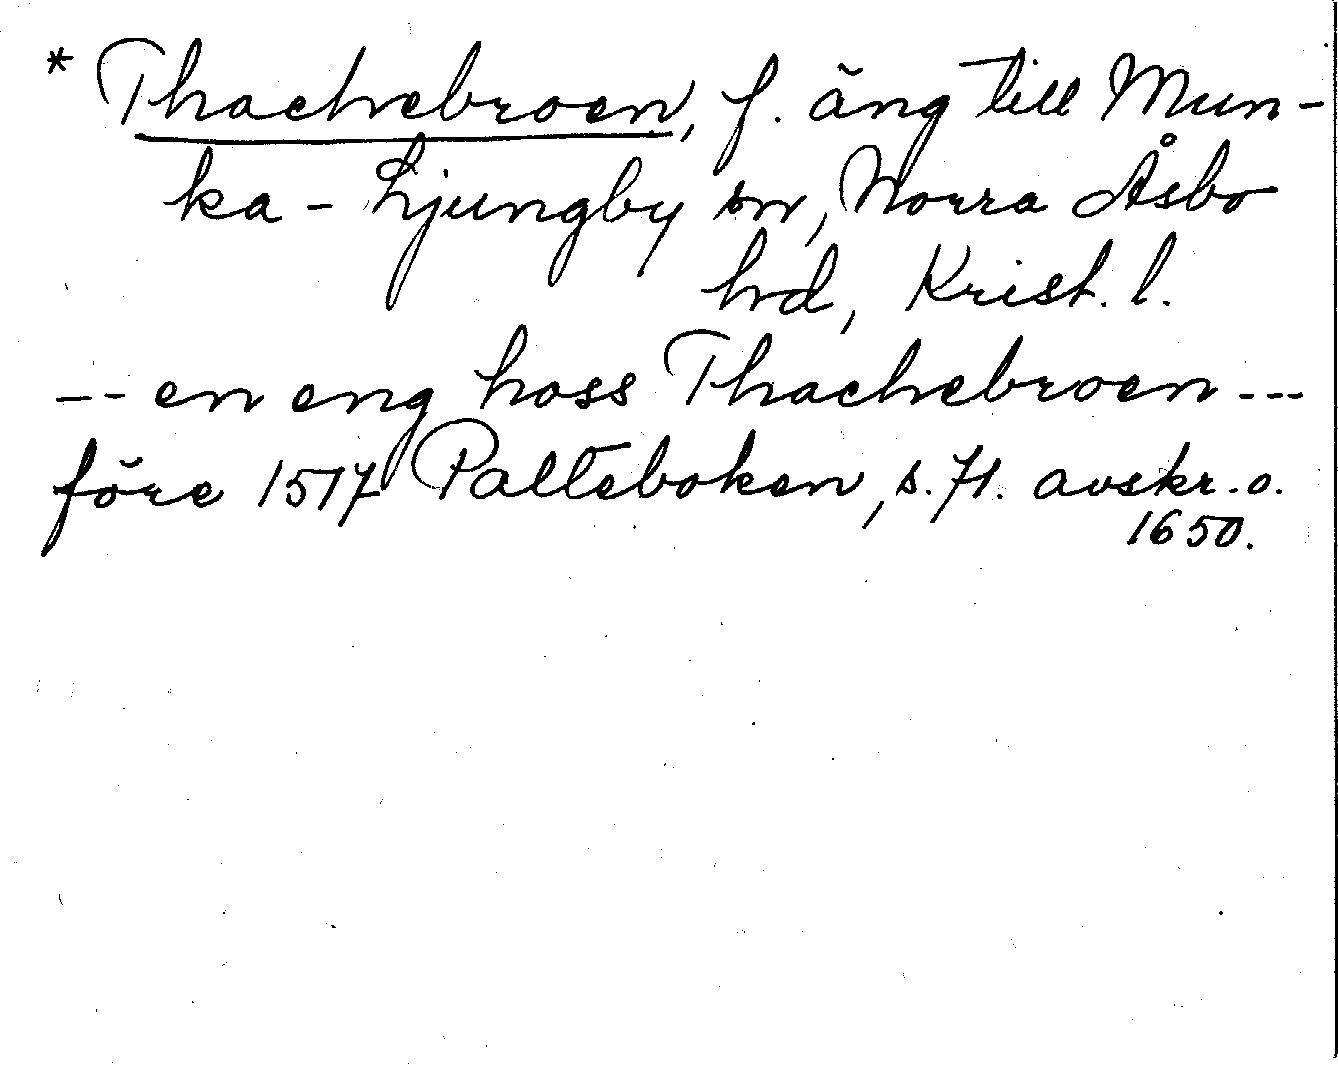 * Thachebroen, f. äng till Mun-
ka-Ljungby sn, Norra Åsbo
hd, Krist. l.
-- en eng hoss Thachebroen ---
före 1517 Palteboken, s. 71. avskr. o.
1650.